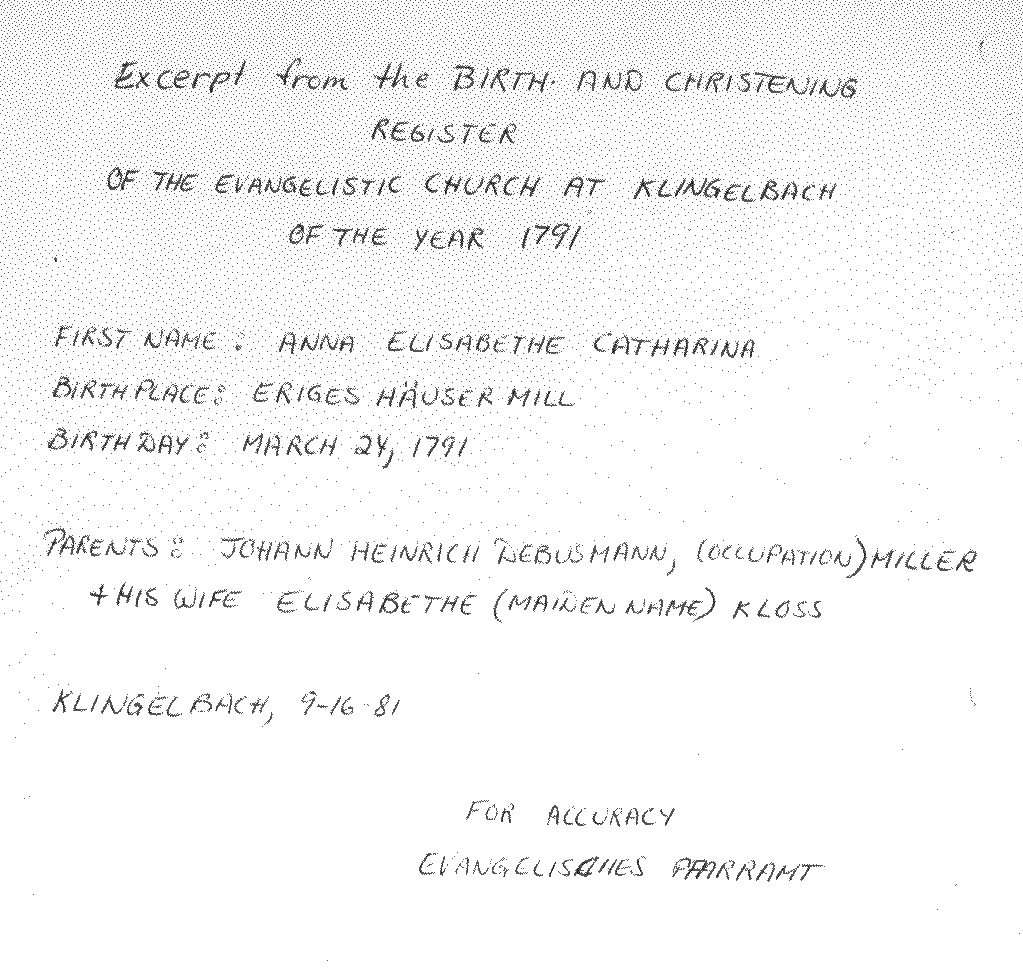 Excerpt from the BIRTH- AND CHRISTENING
REGISTER
OF THE EVANGELISTIC CHURCH AT KLINGELBACH
OF THE YEAR 1791
FIRST NAME: ANNA ELISABETHE CATHARINA
BIRTHPLACE: ERIGES HÄUSER MILL
BIRTHDAY: MARCH 24, 1791
PARENTS: JOHANN HEINRICH DEBUSMANN, (OCCUPATION) MILLER
+ HIS WIFE ELISABETHE (MAIDEN NAME) KLOSS
KLINGELBACH, 9-16-81
FOR ACCURACY
EVANGELISCHES PFARRAMT